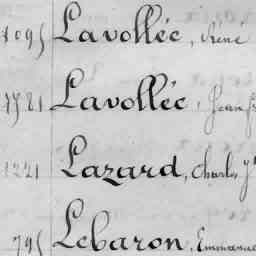 1095 Lavollée, Irène
1781 Lavollée, Jean
1221 Lazard, Charles
795 Lebaron, Emmanuel